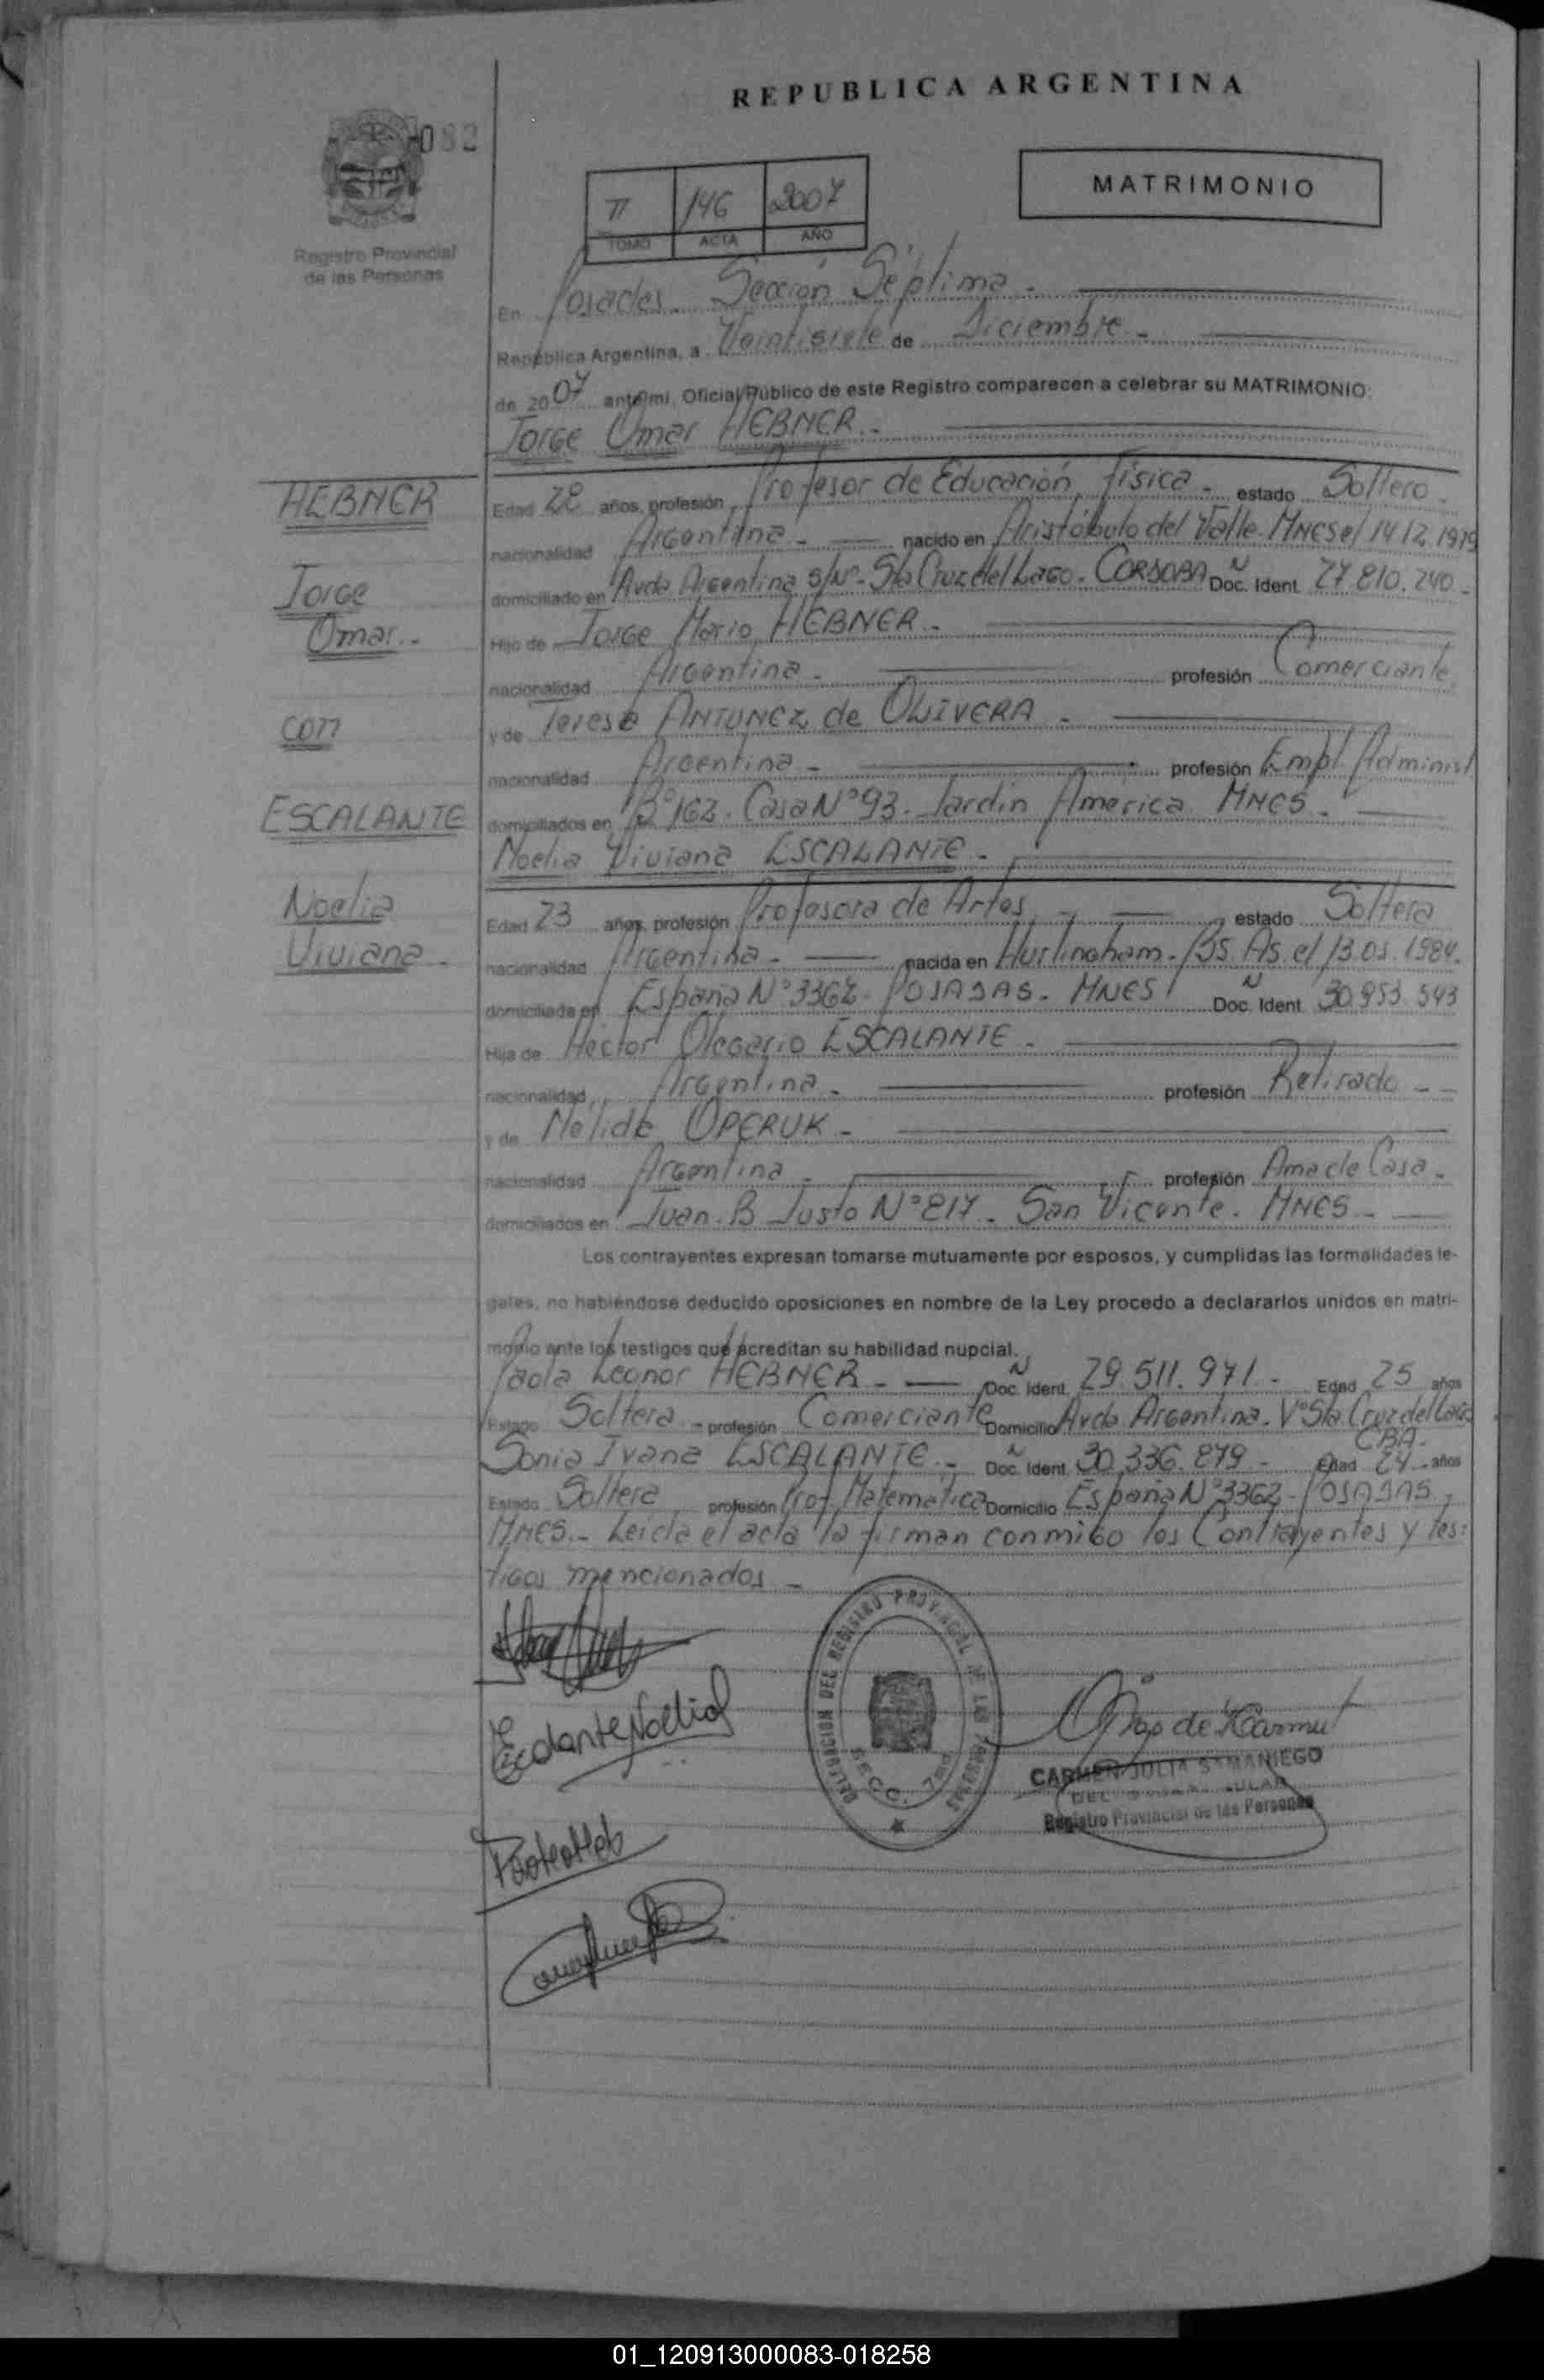 REPUBLICA ARGENTINA
082
MATRIMONIO
II 146 2007
TOMO ACTA AÑO
Registro Provincial
de las Personas
En Posadas. Sección Séptima.-
República Argentina, a Veintisiete de Diciembre.-
de 2007 ante mi, Oficial Público de este Registro comparecen a celebrar su MATRIMONIO:
Jorge Omar HEBNER.-
HEBNER
Jorge
Omar.-
con
ESCALANTE
Noelia
Viviana.-
Edad 28 años, profesión Profesor de Educación física.- estado Soltero.
nacionalidad Argentina.- nacido en Aristóbulo del Valle. MNES el 14 12.1979
domiciliado en Avda. Argentina S/Nº. Sta Cruz del Lago. CORDOBA N Doc. Ident. 27.810.240.-
Hijo de Jorge Mario HEBNER.-
nacionalidad Argentina.- profesión Comerciante.
y de Teresa ANTUNEZ de OLIVERA.-
nacionalidad Argentina.- profesión Empl. Administ.
domiciliados en Bº 162. Casa Nº 93. Jardín América. MNES.-
Noelia Viviana ESCALANTE.-
Edad 23 años, profesión Profesora de Artes.- estado Soltera
nacionalidad Argentina.- nacida en Hurlingham. Bs. As. el 13.01.1984.
domiciliada en España Nº 3362- POSADAS. MNES N Doc. Ident. 30.953.543
Hija de Hector Olegario ESCALANTE.-
nacionalidad Argentina.- profesión Retirado.-
y de Nelida OPERUK.-
nacionalidad Argentina.- profesión Ama de Casa.-
domiciliados en Juan. B Justo Nº 817. San Vicente. MNES.-
Los contrayentes expresan tomarse mutuamente por esposos, y cumplidas las formalidades le-
gales, no habiéndose deducido oposiciones en nombre de la Ley procedo a declararlos unidos en matri-
monio ante los testigos que acreditan su habilidad nupcial.
Paola Leonor HEBNER.- N Doc. Ident. 29.511.971.- Edad 25 años
Estado Soltera.- profesión Comerciante Domicilio Avda. Argentina. Vº Sta. Cruz del Lago
CBA.-
Sonia Ivana ESCALANTE.- N Doc. Ident. 30.336.879.- Edad 24 años
Estado Soltera profesión Prof. Matemática Domicilio España Nº 3362- POSADAS.-
MNES.- Leida el acta la firman conmigo los Contrayentes y tes-
tigos mencionados.-
DELEGACION DEL REGISTRO PROVINCIAL DE LAS PERSONAS
SECC. 7ma
Escalante Noelia
CARMEN JULIA SAMANIEGO
Registro Provincial de las Personas
01_120913000083-018258